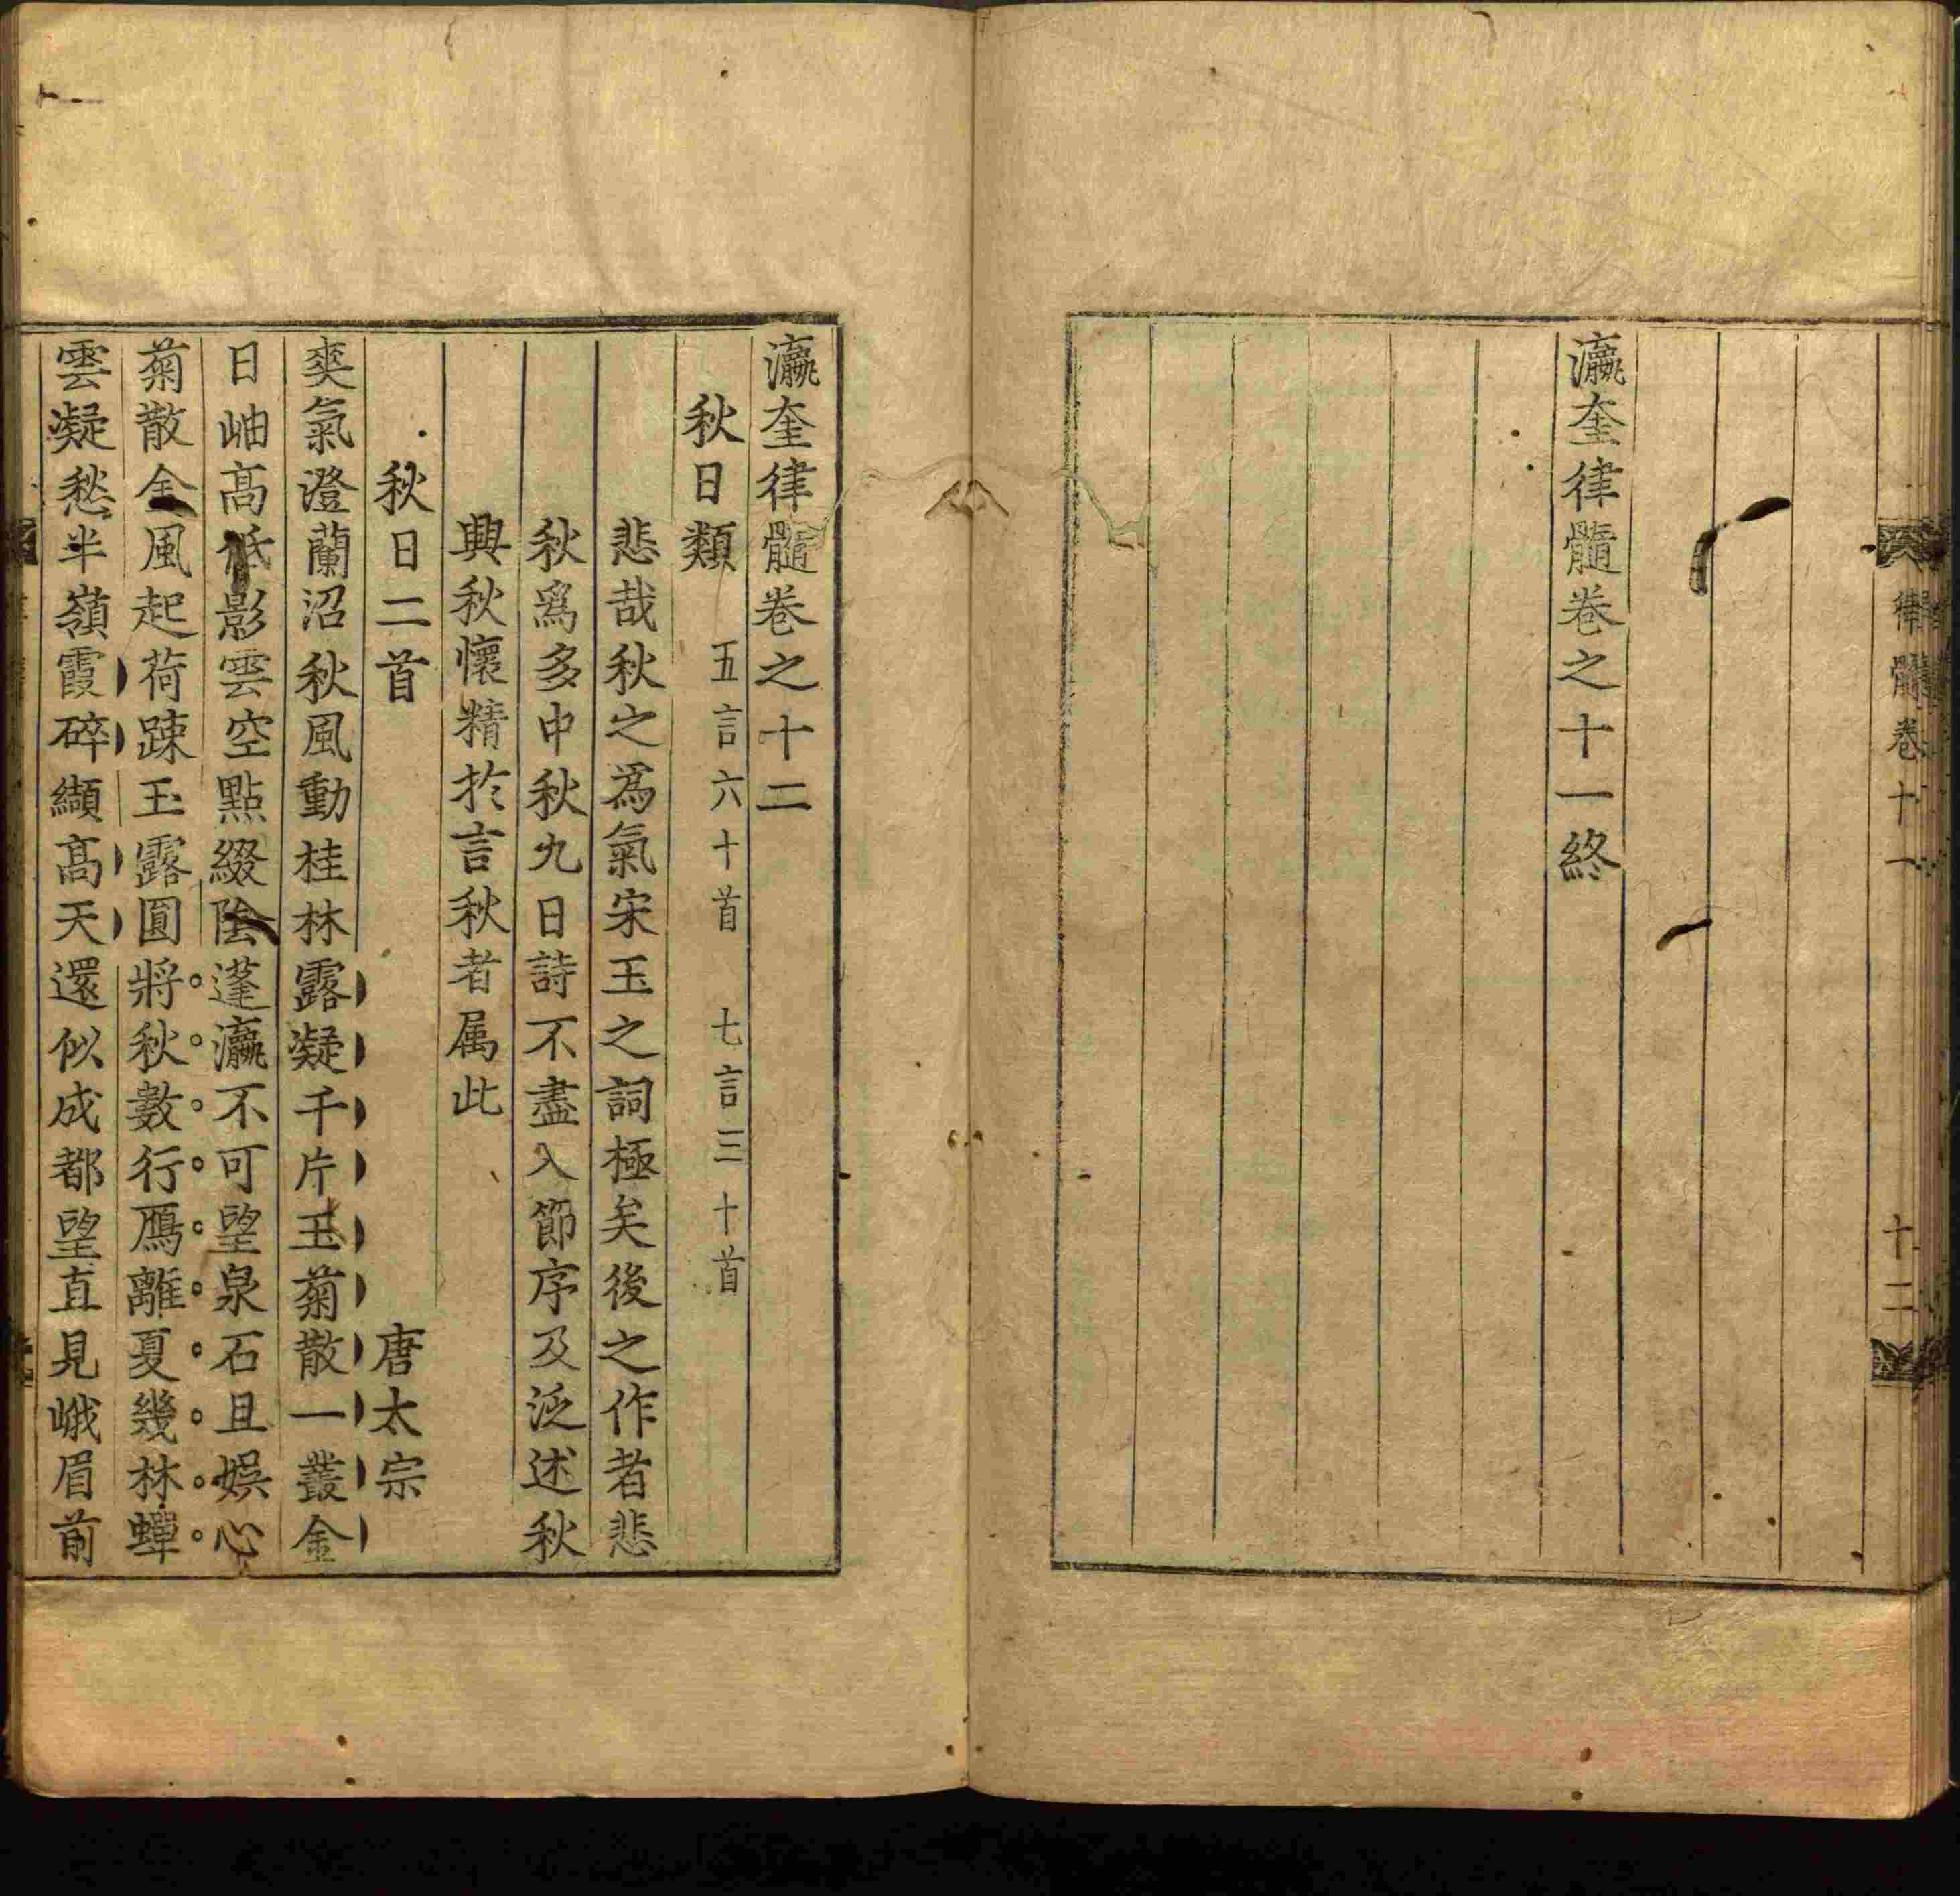 律髓卷十一
十二
瀛奎律髓卷之十一終
瀛奎律髓卷之十二
秋日類 五言六十首 七言三十首
悲哉秋之爲氣宋玉之詞極矣後之作者悲
秋爲多中秋九日詩不盡入節序及泛述秋
興秋懷精於言秋者属此
秋日二首 唐太宗
爽氣澄蘭沼秋風動桂林露凝千片玉菊散一叢金
日岫高低影雲空點綴陰蓬瀛不可望泉石且娯心
菊散金風起荷踈玉露圓將秋數行鴈離夏幾林蟬
雲凝愁半嶺霞碎纈高天還似成都望直見峨眉前